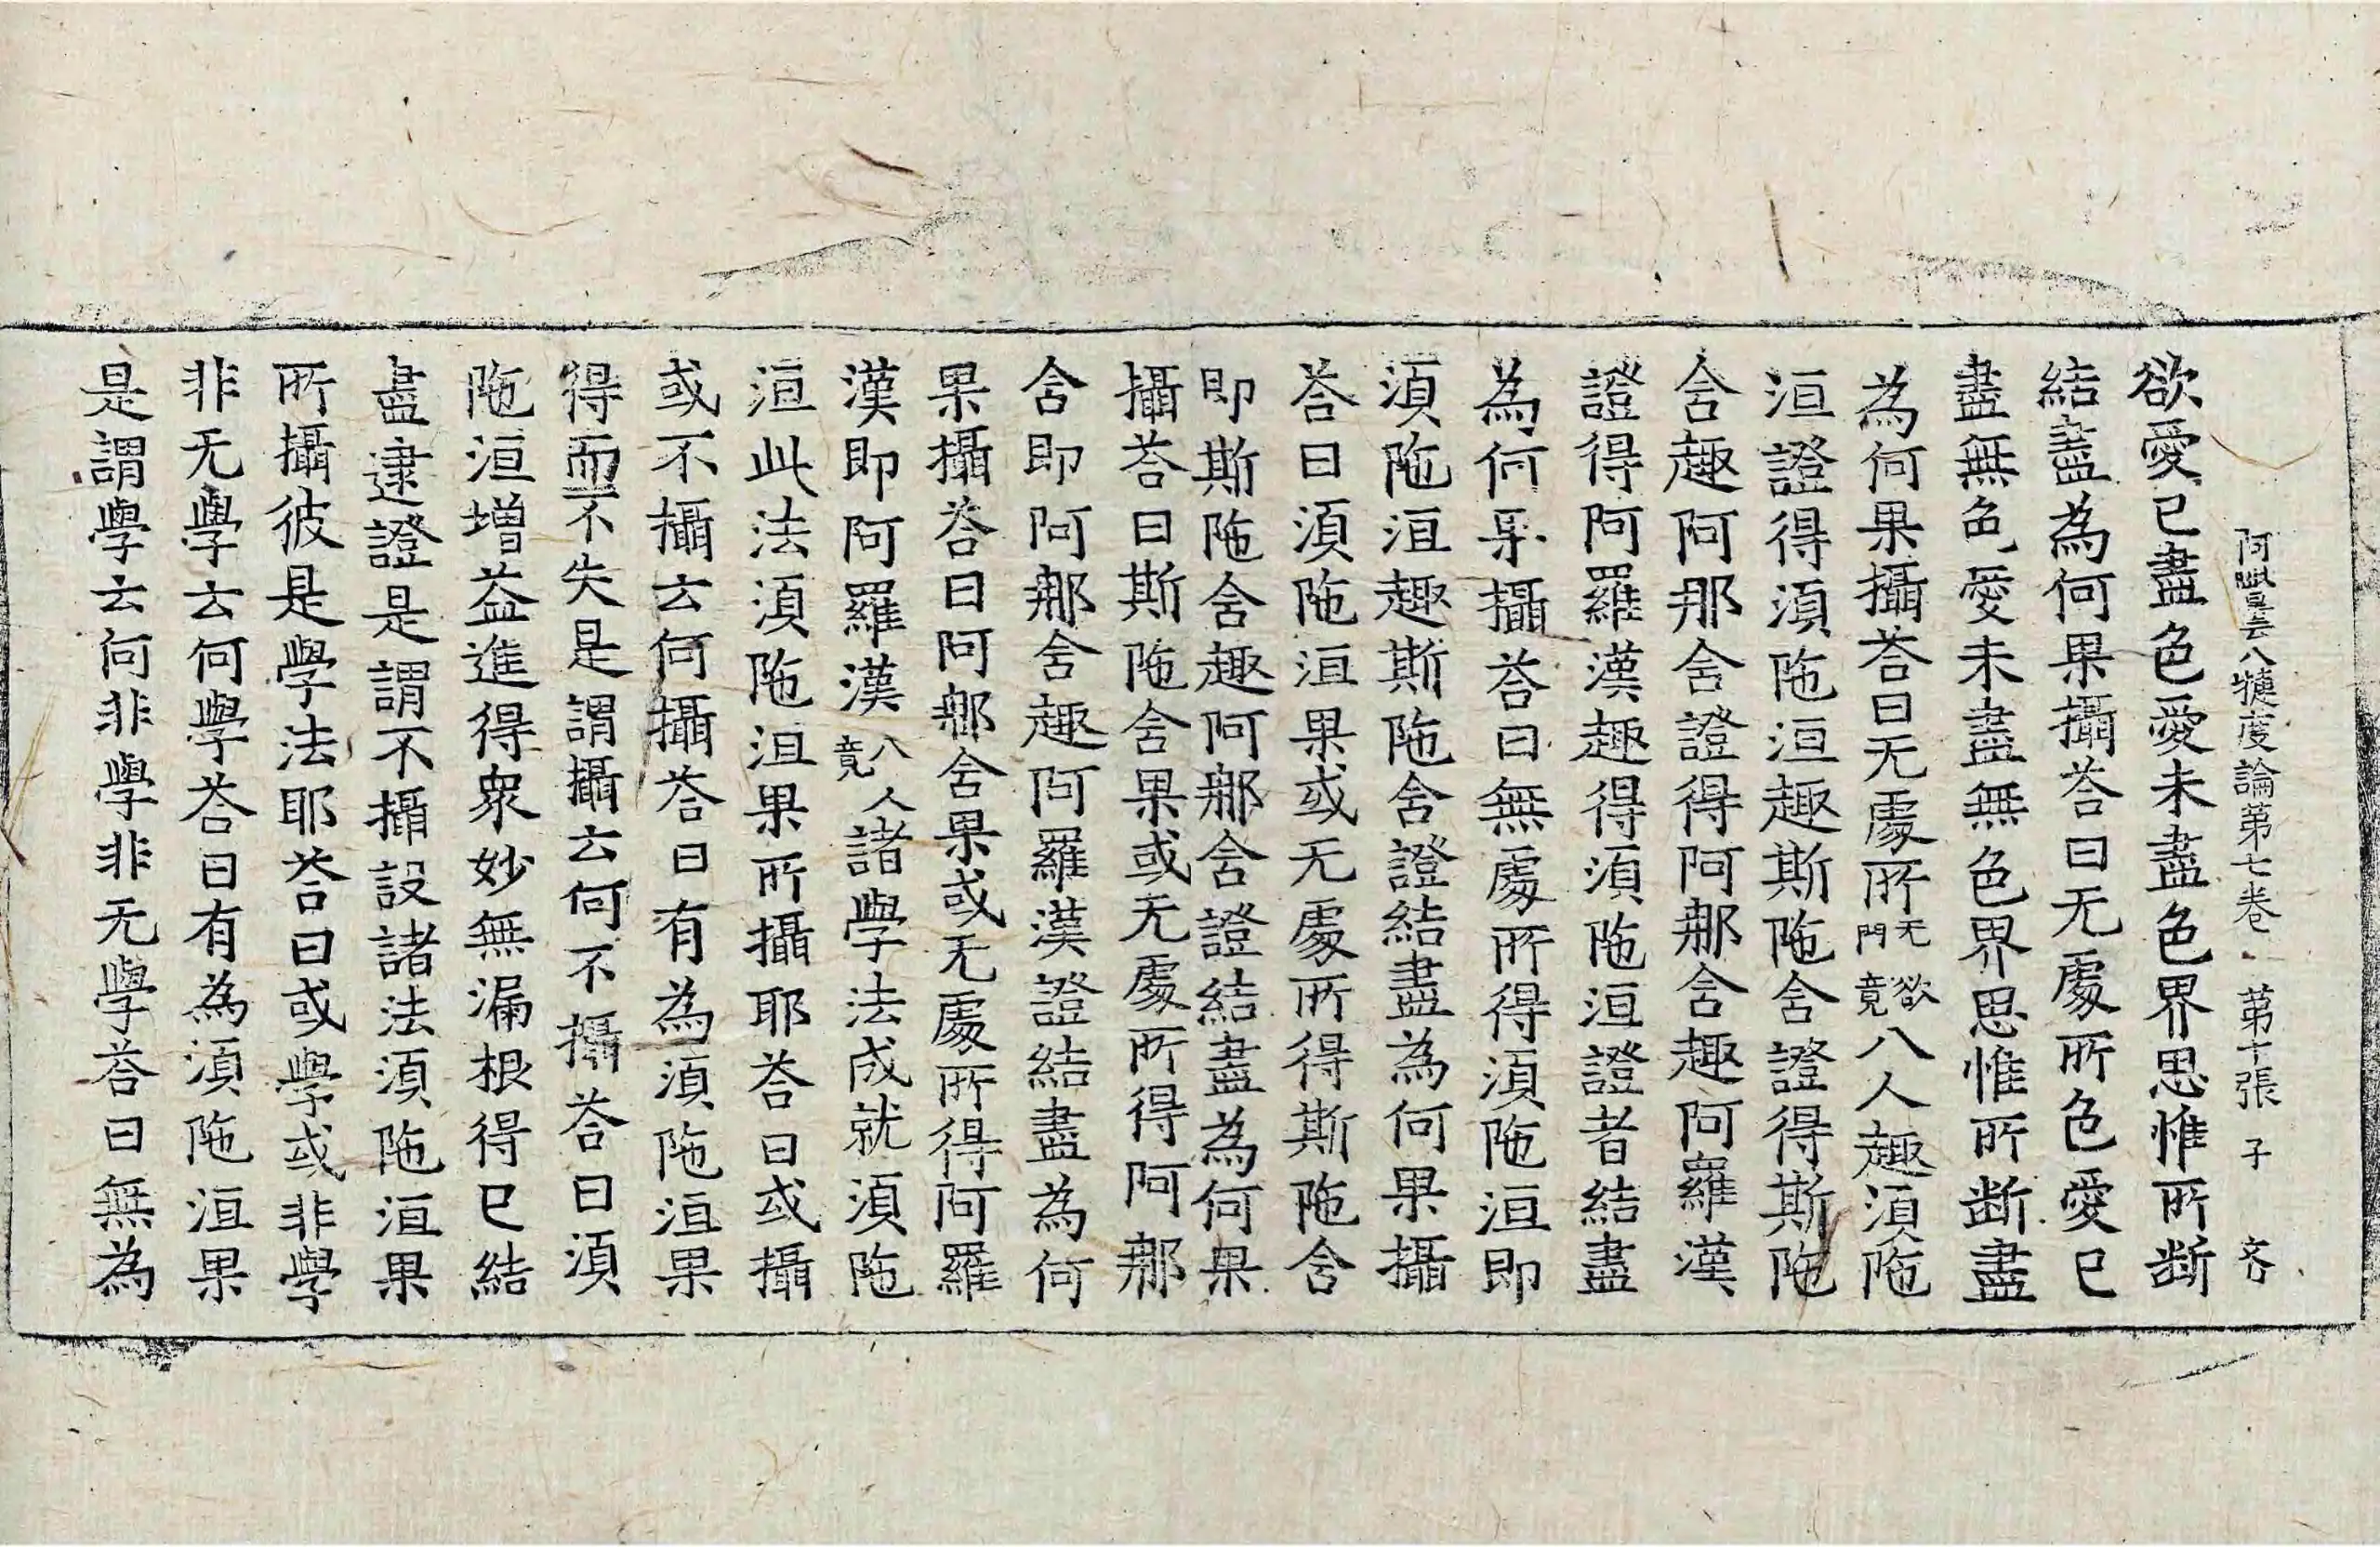 阿毗曇八犍度論第七卷 第十張 子
欲愛已盡色愛未盡色界思惟所斷
結盡為何果攝荅曰无處所色愛已
盡無色愛未盡無色界思惟所断盡
為何果攝荅曰无處所无欲門竟八人趣湏陁
洹證得湏陁洹趣斯陁含證得斯陁
含趣阿那含證得阿那含趣阿羅漢
證得阿羅漢趣得湏陁洹證者結盡
為何果攝荅曰無處所得湏陁洹即
湏陁洹趣斯陁含證結盡為何果攝
荅曰湏陁洹果或无處所得斯陁含
即斯陁含趣阿那含證結盡為何果
攝荅曰斯陁含果或无處所得阿那
含即阿那含趣阿羅漢證結盡為何
果攝荅曰阿那含果或无處所得阿羅
漢即阿羅漢八人竟諸學法成就湏陁
洹此法湏陁洹果所攝耶荅曰或攝
或不攝云何攝荅曰有為湏陁洹果
得而不失是謂攝云何不攝荅曰湏
陁洹增益進得衆妙無漏根得已結
盡逮證是謂不攝設諸法湏陁洹果
所攝彼是學法耶荅曰或學或非學
非无學云何學荅曰有為湏陁洹果
是謂學云何非學非无學荅曰無為